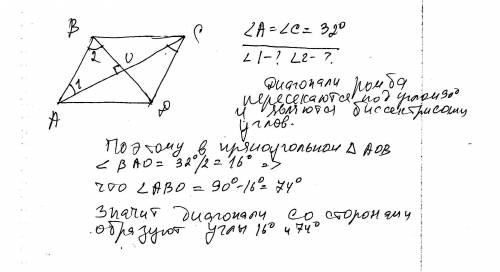 B C
∠A=∠C=32°
2 O
∠1-? ∠2-?
1
A D
Диагонали ромба
пересекаются под углом 90°
и являются биссектрисами
углов.
Поэтому в прямоугольном △ AOB
∠ BAO = 32°/2 = 16° =>
что ∠ABO = 90°-16° = 74°
Значит диагонали со сторонами
образуют углы 16° и 74°